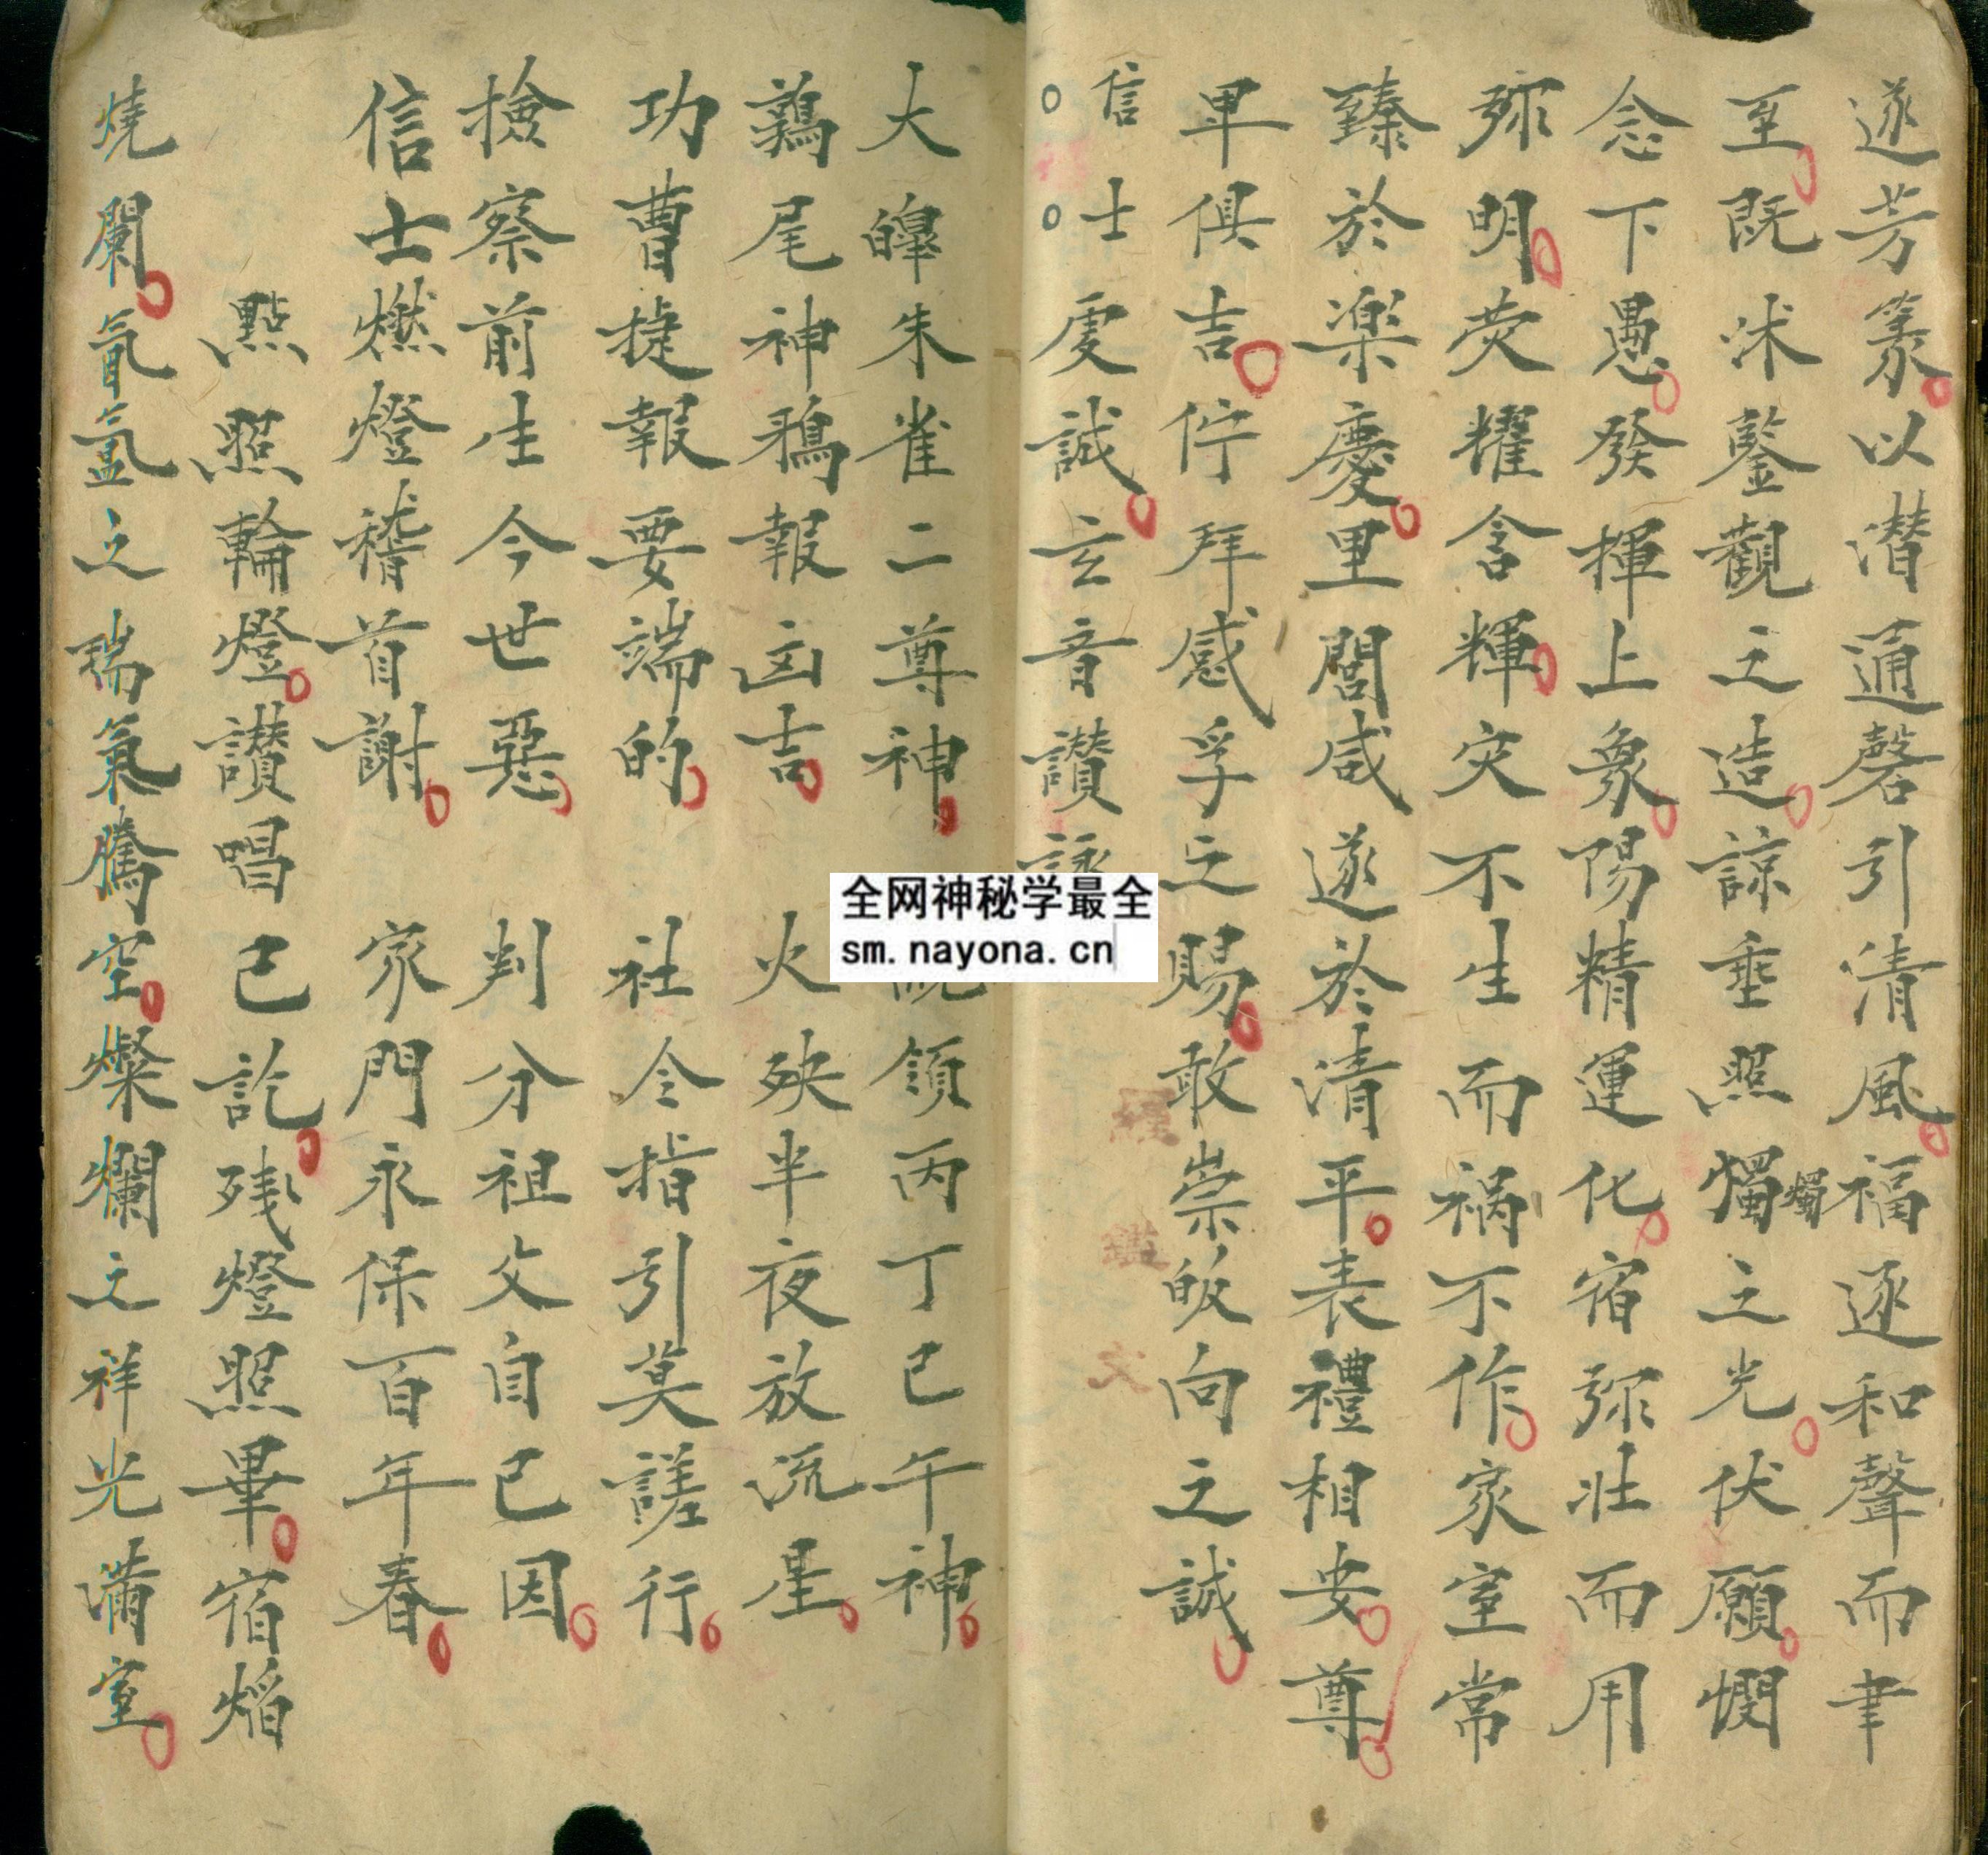 遂芳篆以潜通磬引清風福逐和聲而聿
至既沐鑒觀之造諒垂照燭之光伏願憫
燭
念下愚發揮上象陽精運化宿弥壮而用
弥明荧耀含輝灾不生而祸不作家室常
臻於楽慶里閭咸遂於清平表禮相安尊
卑俱吉佇拜感孚之賜敢崇皈向之誠
信士虔誠玄音讃詠
大皞朱雀二尊神 領丙丁巳午神
鶉尾神鴉報凶吉 火殃半夜放流星
功曹捷報要端的 社令指引莫謎行
撿察前生今世惡 判分祖父自己因
信士燃燈稽首謝 家門永保百年春
點照輪燈讃唱已訖残燈照畢宿焰
燒闌氤氲之瑞氣騰空燦爛之祥光滿室
全网神秘学最全
sm.nayona.cn